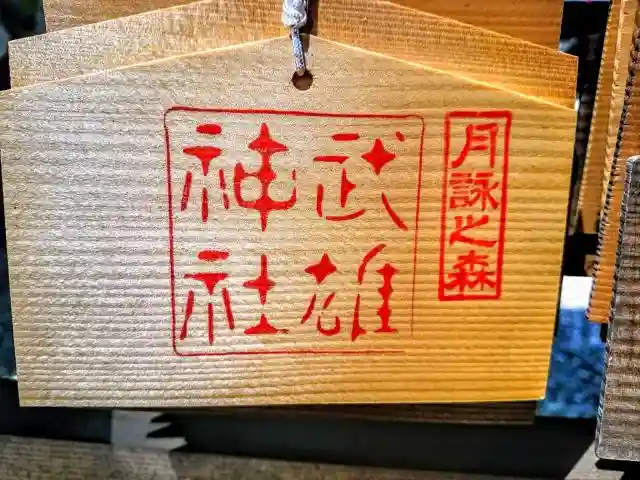 月詠之森
武雄
神社